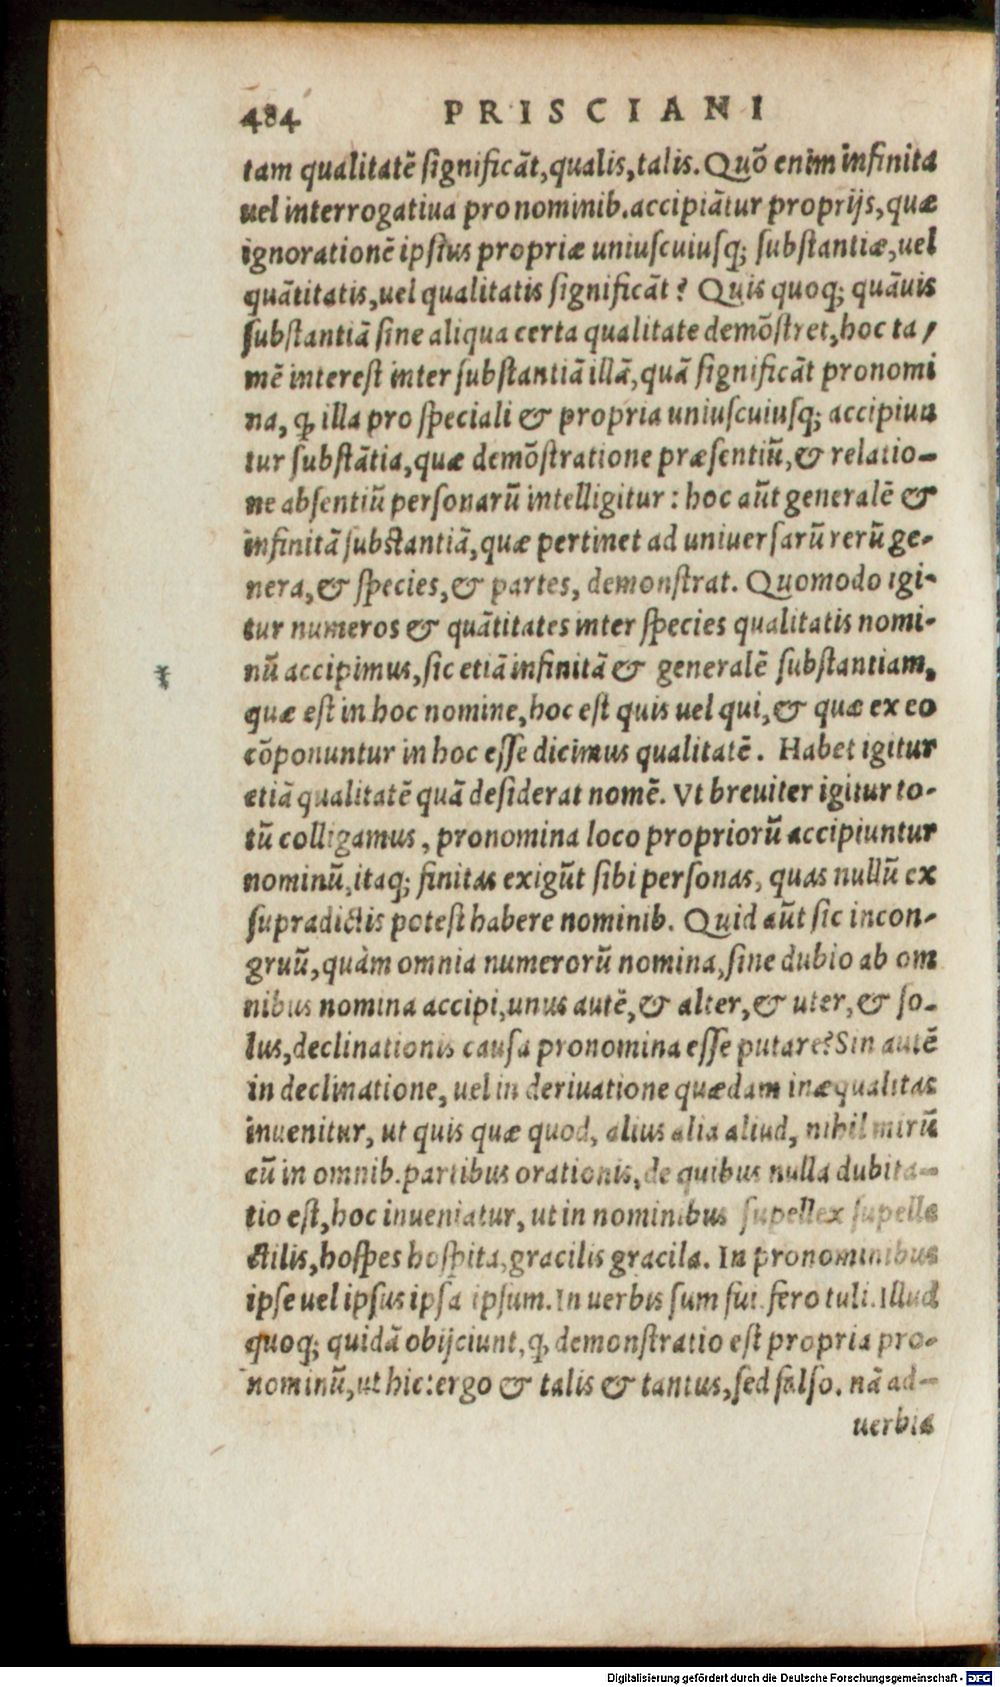 484 PRISCIANI
tam qualitatē significāt,qualis,talis. Quō enim infinita
uel interrogatiua pronominib.accipiātur proprijs,quæ
ignorationē ipsius propriæ uniuscuiusq; substantiæ,uel
quātitatis,uel qualitatis significāt? Quis quoq; quāuis
substantiā sine aliqua certa qualitate demōstret,hoc ta/
mē interest inter substantiā illā,quā significāt pronomi
na, ꝙ illa pro speciali & propria uniuscuiusq; accipiun
tur substātia,quæ demōstratione præsentiū,& relatio-
ne absentiū personarū intelligitur: hoc aūt generalē &
infinitā substantiā,quæ pertinet ad uniuersarū rerū ge-
nera,& species,& partes, demonstrat. Quomodo igi-
tur numeros & quātitates inter species qualitatis nomi-
nū accipimus,sic etiā infinitā & generalē substantiam,
quæ est in hoc nomine,hoc est quis uel qui,& quæ ex eo
cōponuntur in hoc esse dicimus qualitatē. Habet igitur
etiā qualitatē quā desiderat nomē. Vt breuiter igitur to-
tū colligamus, pronomina loco propriorū accipiuntur
nominū,itaq; finitas exigūt sibi personas, quas nullū ex
supradictis potest habere nominib. Quid aūt sic incon-
gruū,quàm omnia numerorū nomina,sine dubio ab om
nibus nomina accipi,unus autē,& alter,& uter,& so-
lus,declinationis causa pronomina esse putare? Sin autē
in declinatione, uel in deriuatione quædam inæqualitas
inuenitur, ut quis quæ quod, alius alia aliud, nihil mirū
cū in omnib.partibus orationis,de quibus nulla dubita-
tio est,hoc inueniatur, ut in nominibus supellex supelle
ctilis,hospes hospita,gracilis gracila. In pronominibus
ipse uel ipsus ipsa ipsum. In uerbis sum fui. fero tuli. Illud
quoq; quidā obijciunt,ꝙ demonstratio est propria pro-
nominū,ut hic:ergo & talis & tantus,sed falso. nā ad-
uerbia
Digitalisierung gefördert durch die Deutsche Forschungsgemeinschaft - DFG